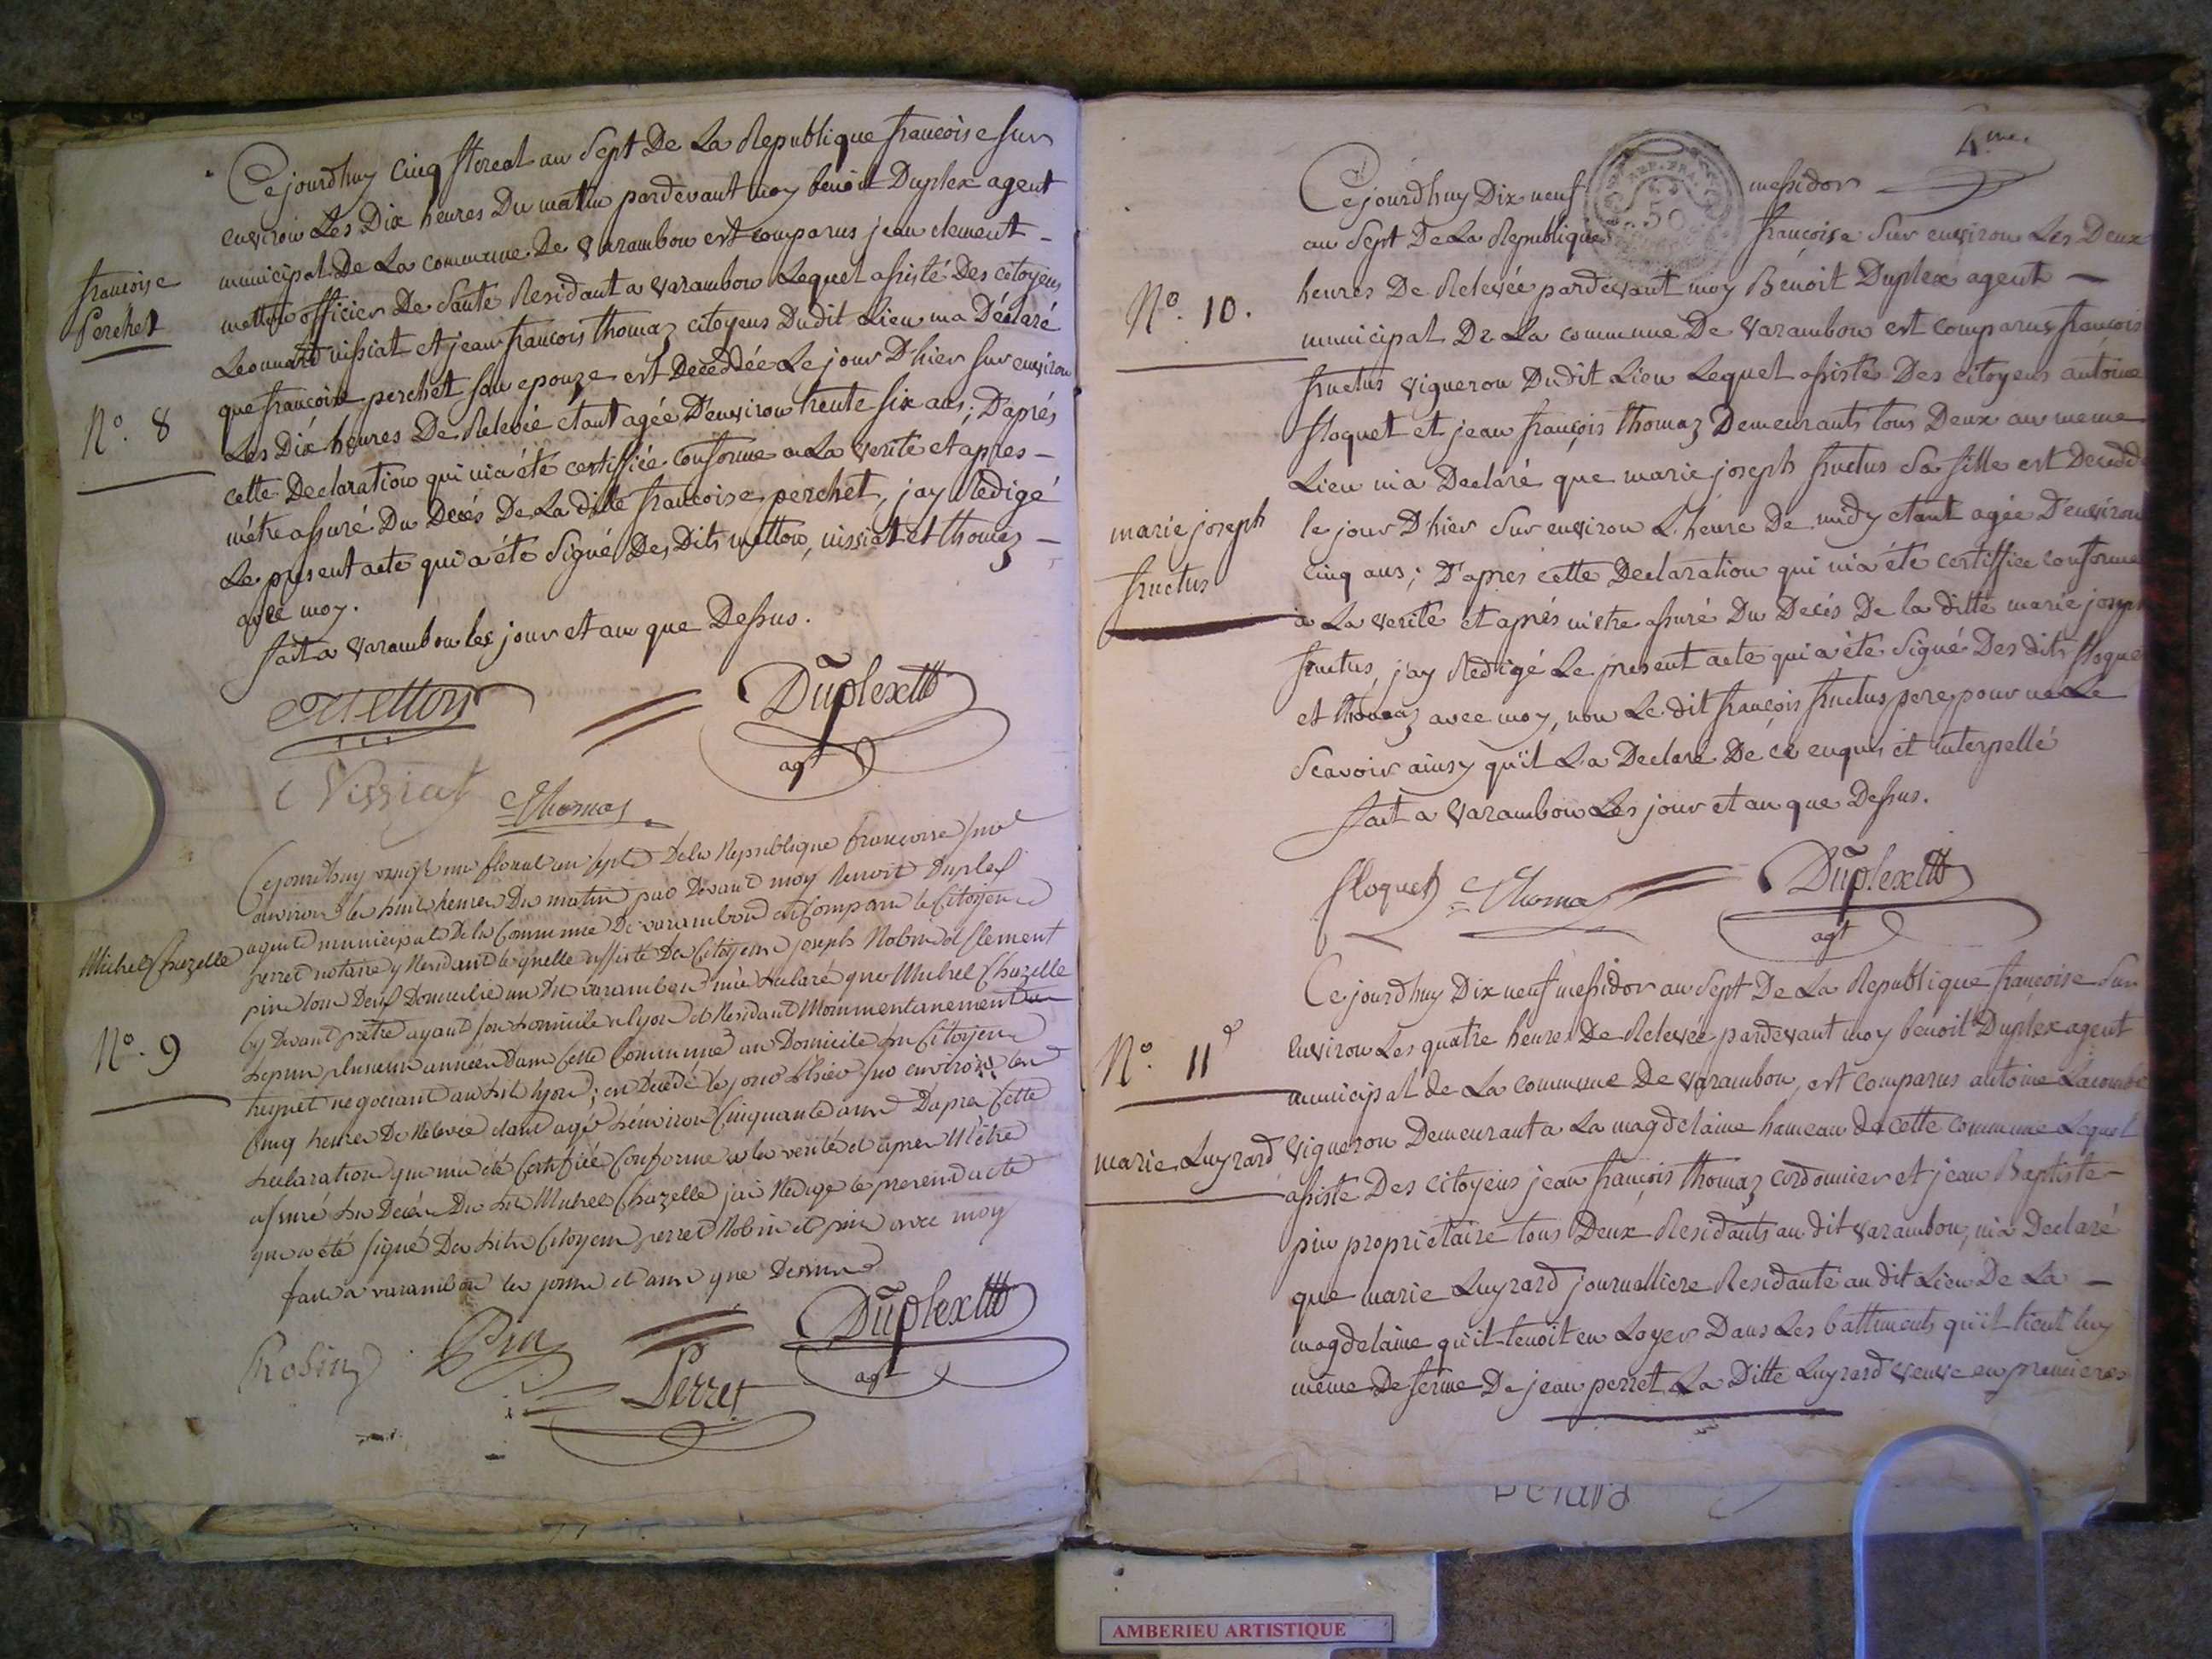 Cejourdhuy Cinq floreal an Sept De La Republique francoise sur
environ Les Dix heures Du matin pardevant moy benoit Duplex agent
municipal De La commune De Varambon est comparus jean clement
metton officier De Santé Residant a varambon Lequel assisté Des citoyens
Leonnard vissiat et jean francois thomaz citoyens Dudit Lieu ma Déclaré
que francoise perchet son epouze est Decedée Le jour D'hier sur environ
Les Dix heures De Relevée etant agée D'environ trente six ans; D'aprés
cette Declaration qui m'a été certiffiée conforme a La verité et apres
m'étre assuré Du Decés De La ditte francoise perchet, jay Redigé
Le present acte qui a été Signé Des Dits metton, vissiat et thomaz
avec moy.
fait a Varambon les jour et an que Dessus.
francoise
Perchet
N.º 8
Metton
Duplex
agt
Vissiat
Thomas
Cejourdhuy vingt un floreal an sept De la Republique françoise sur
environ les huit heures Du matin par Devant moy Benoit Duplex
agent municipal De la Commune De varambon est Comparu le Citoyen
perret notaire y Residant lequelle assisté Des Citoyens joseph Robin et Clement
pin tous Deux Domicilié au Dit varambon m'a declaré que Michel Chazelle
cy Devant prêtre ayant son domicile a lyon et Residant Mommentanement
depuis plusieurs années dans cette Commune au Domicile du Citoyen
negociant au dit lyon; est Decedé le jour d'hier sur environ les
Cinq heures De Relevée etant agé d'environ Cinquante ans D'apres Cette
declaration qui m'a été Certifiée Conforme a la verité et apres M'être
assuré du Decés Du dit Michel Chazelle jai Redigé le present acte
qui a été signé Des dits Citoyens perret Robin et pin avec moy
fait a varambon les jour et an que Dessus
Michel Chazelle
N.º 9
Robin
Pin
Perret
Duplex
agt
4.me
REP. FRA.
50
Cejourdhuy Dix neuf messidor
an Sept De La Republique francoise Sur environ Les Deux
heures De Relevée pardevant moy Benoit Duplex agent
municipal De La commune De Varambon est comparus françois
fructus vigneron Dudit Lieu Lequel assisté Des citoyens antoine
floquet et jean françois thomaz Demeurants tous Deux au meme
Lieu m'a Declaré que marie joseph fructus Sa fille est Decedé
le jour D'hier Sur environ L'heure De midy etant agée D'environ
Cinq ans; D'aprés cette Declaration qui m'a été certiffiée conforme
a La verité et aprés m'etre assuré Du Decés De la ditte marie joseph
fructus, j'ay Redigé Le present acte qui a été Signé Des dits floquet
et thomaz avec moy, non Le dit françois fructus pere pour ne Le
Scavoir ainsy qu'il La Declaré De ce enquis et interpellé
fait a Varambon Les jour et an que Dessus.
N.º 10.
marie joseph
fructus
floquet
Thomas
Duplex
agt
Cejourdhuy Dix neuf messidor an Sept De La Republique françoise Sur
environ Les quatre heures De Relevée pardevant moy benoit Duplex agent
municipal de La commune De varambon, est comparus antoine Lacombe
vigneron Demeurant a La magdelaine hameau de cette commune Lequel
assisté Des citoyens jean françois thomaz cordonnier et jean Baptiste
pin proprietaire tous Deux Residants au dit varambon, m'a Declaré
que marie Luyrard journalliere Residante au dit Lieu De La
magdelaine qu'il tenoit en Loyer Dans Les battiments qu'il tient luy
même De ferme De jean perret, La Ditte Luyrard veuve en premieres
N.º 11
marie Luyrard
AMBERIEU ARTISTIQUE